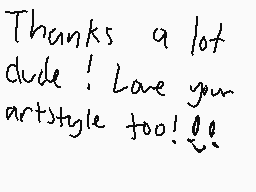 Thanks a lot
dude! Love your
artstyle too!!!